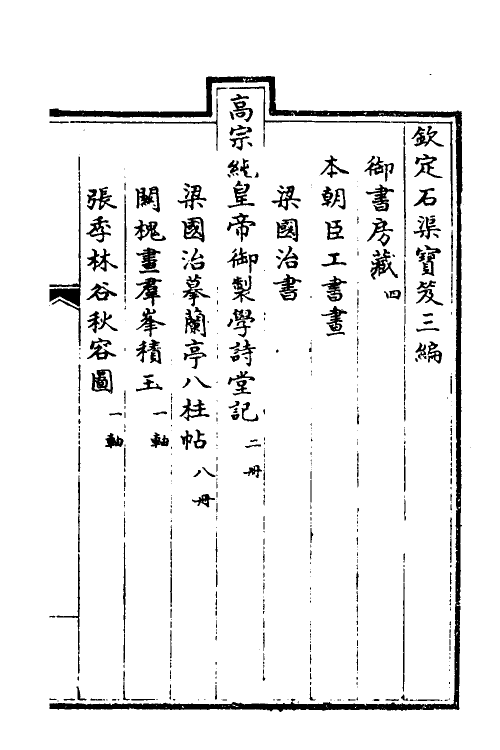 欽定石渠寶笈三編
御書房藏四
本朝臣工書畫
梁國治書
高宗純皇帝御製學詩堂記二冊
梁國治摹蘭亭八柱帖八冊
關槐畫羣峯積玉一軸
張季林谷秋容圖一軸